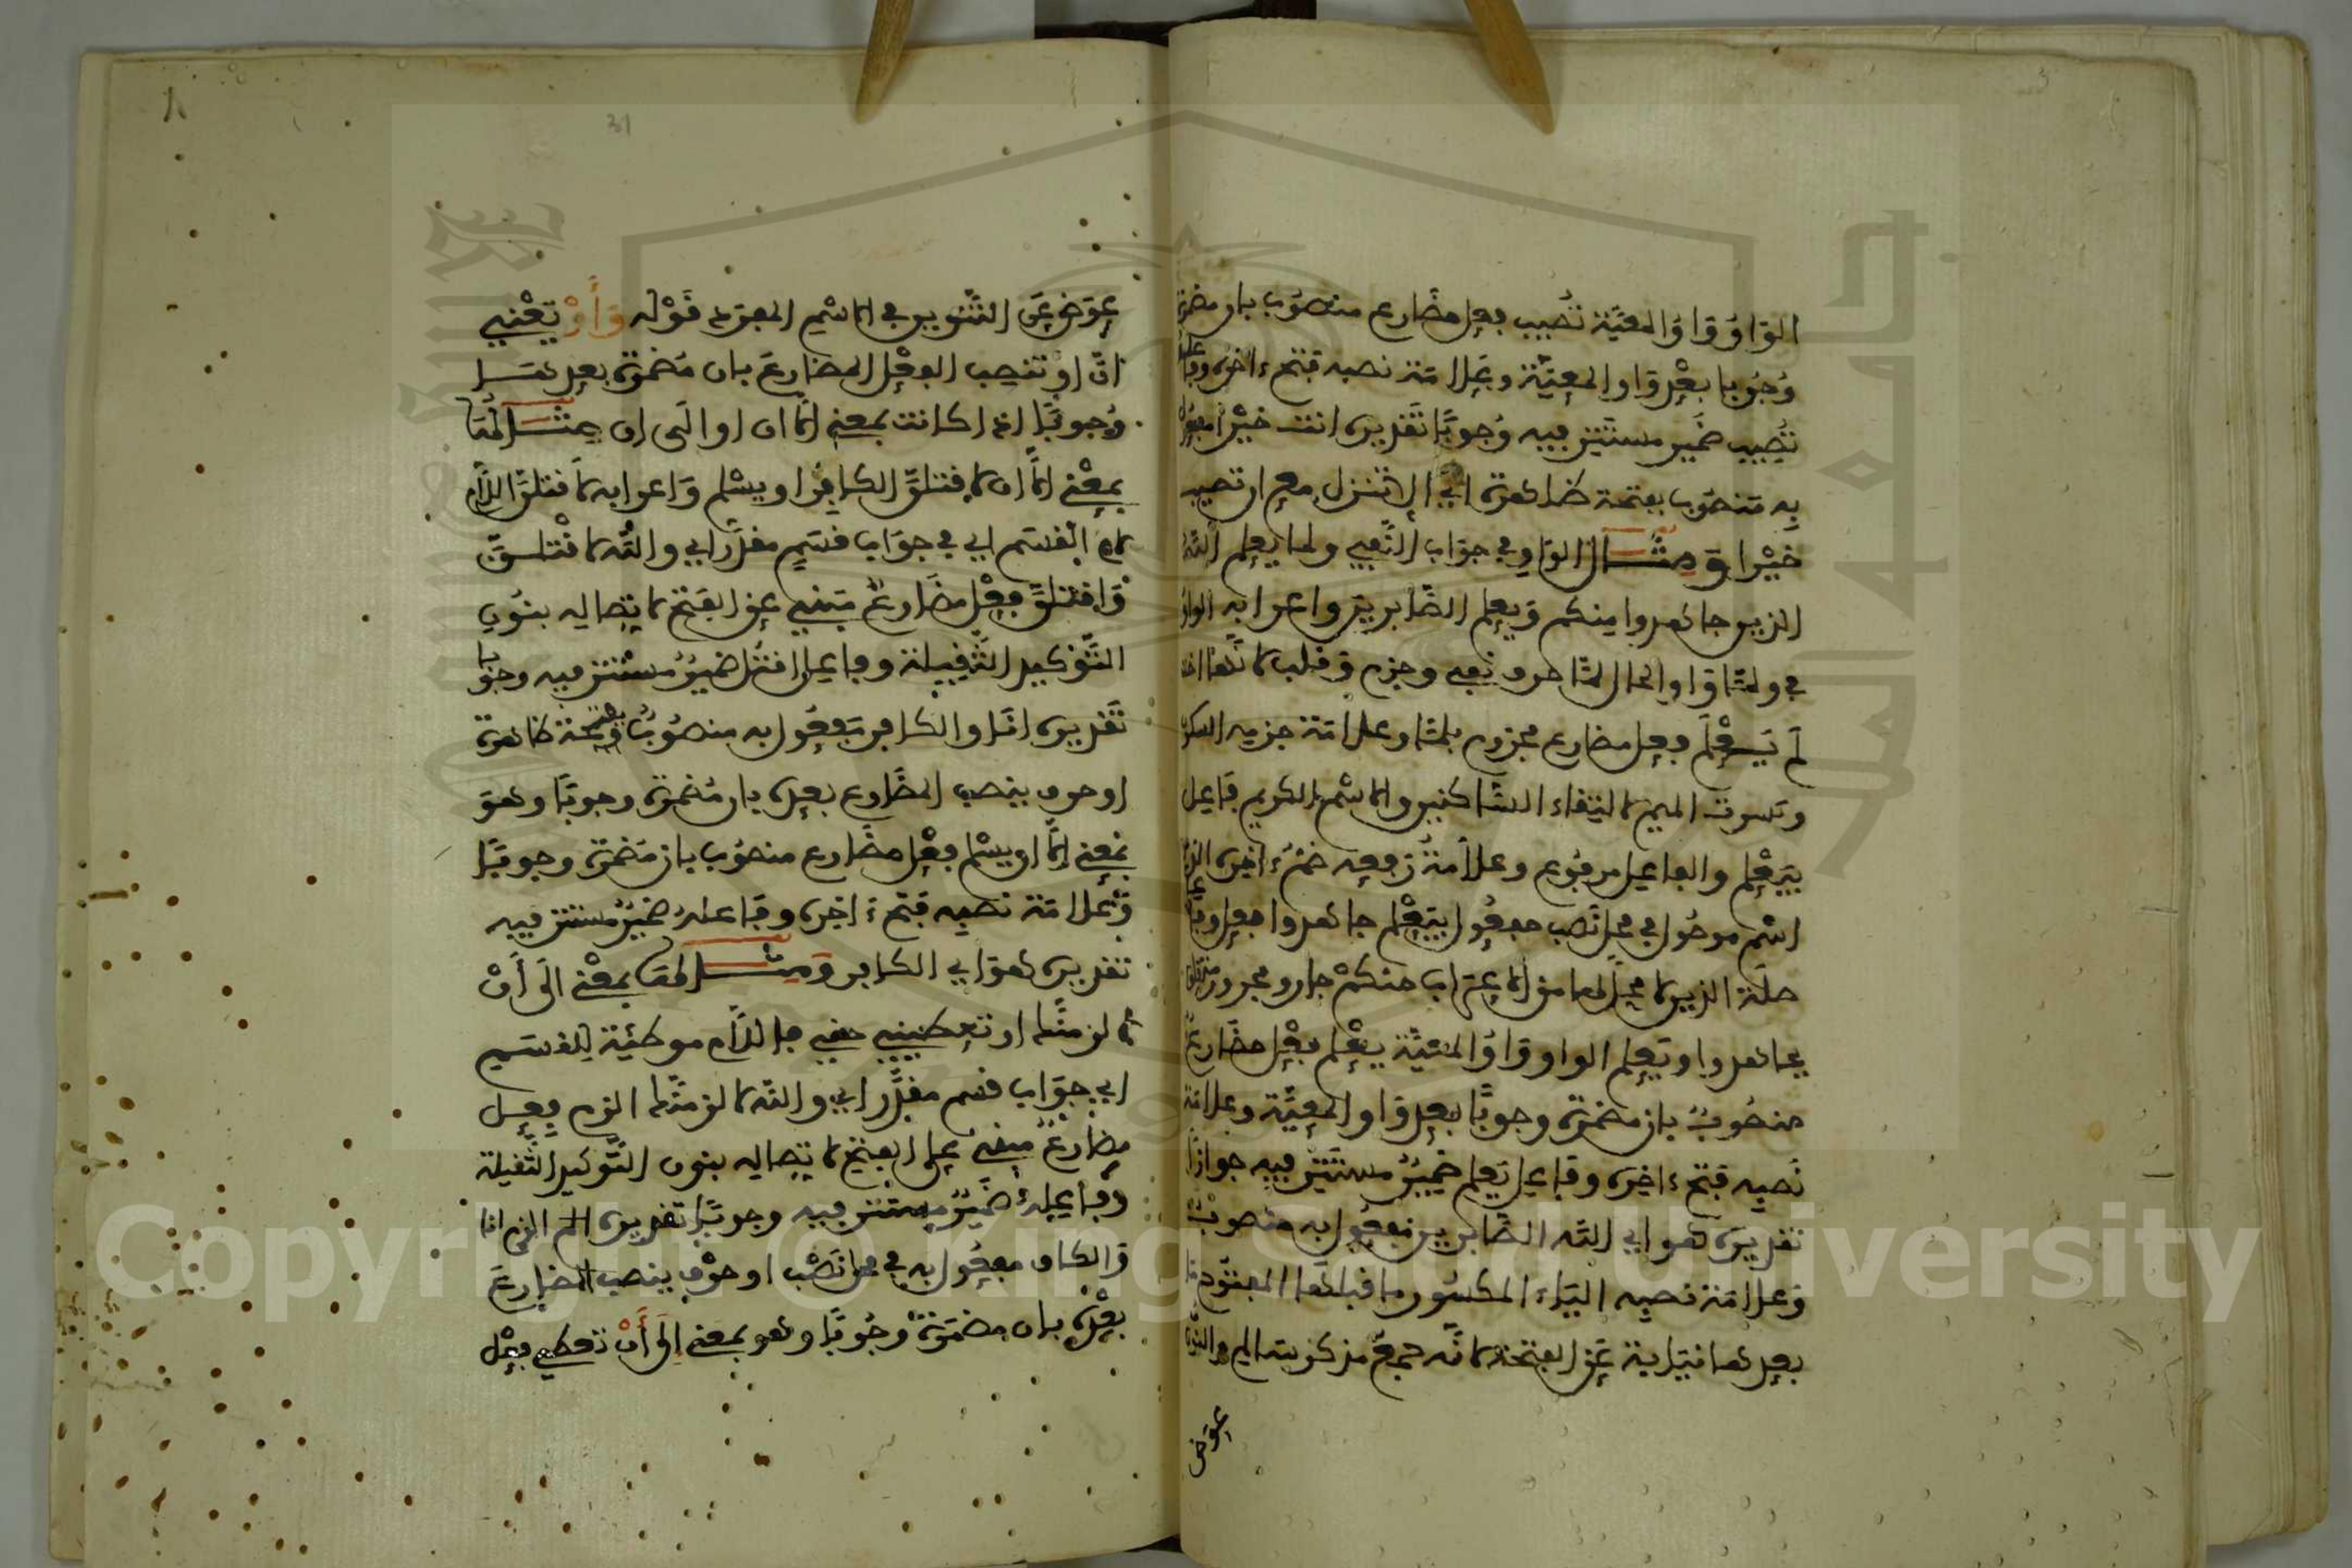 الواو واو المعيّة تُصيب فعل مضارع منصوب بان مضمرة
وُجُوبا بعْد واو المعيّة وعلامة نصبه فتح ءاخره وفاعل
تُصِيب ضمير مستتر فيه وُجوبًا تقديره انت خيْرا مفعول
به منصوب بفتحة ظاهرة اي الا تنزل مع ان تصيب
خيْرا وَمِثَال الواو في جواب النّفي ولما يعلم اللّه
الذين جاهدوا منكم وَيعلم الصّابرين واعرابه الواو
في ولمّا واو الحال لمّا حرف نفي وجزم وقلب لانّها اخت
لَم يَعْلَم فعل مضارع مجزوم بلمّا وعلامة جزمه السكون
وكسرت الميم لالتِقاء السّاكنين والاسْم الكريم فاعل
بيَعْلم والفاعل مرفوع وعلامةُ رفعه ضمّ ءاخره الذين
اسْم موصُول في محل نَصب مفعُول بيَعْلم جاهدوا فعل وفاعل
صلَة الذين لا محلّ لها من الاعراب منكمْ جار ومجرور متعلق
بجاهدوا ويَعلم الواو واوُ المعيّة يعْلم فعْل مضارعٌ
منصُوبٌ بان مضمرة وجوبًا بعد واو المعيّة وعلامة
نَصبِه فتح ءاخره وفاعل يَعلم ضميرٌ مستَتِر فيه جوازًا
تقديره هو اي اللّه الصّابرين مفعُول به منصوبٌ
وَعلامَة نصبِه اليَاء المكسُور ما قبلها المفتوح ما
بعدها نيابة عن الفتحة لانّه جمع مذكر سالم والنون
عِوَض
31
عِوَض عَن التّنوين في الاسْم المفرد قَوْله وَأَوْ يَعْني
انّ او تنصب الفعْل المضارعَ بان مُضمرة بعدها
وُجوبًا اذا كانت بمعنى إلّا ان او الى ان مِثَالهَا
بمعْنى إلّا ان لاقتلنّ الكافِر او يسْلم وَاعرابه لأقتلنّ اللّام
لام القسَم اي في جوَاب قسَمٍ مقدّر اي واللّه لاقْتلنّ
وَاقتلنّ فعْل مضارعٌ مَبني على الفتح لاتصاله بنُونِ
التّوْكيد الثّقيلة وفاعل اقتل ضميرٌ مستتر فيه وجوبا
تَقديره انَا والكافر مَفعُول به منصُوبٌ بفتحة ظاهرة
او حرف ينصب المضَارع بعده بان مُضمرة وجوبًا وهوَ
بمَعنى إلّا ان يسْلم فعْل مضارع منصُوب بان مُضمرة وجوبًا
وَعلامَة نصبِه فتح ءاخره وفاعلهُ ضميرٌ مستتر فيه
تقديره هوَ اي الكافر وَمِثالهَا بمعْنى الَى أَنْ
لالزمنّك او تعطيني حقي فاللّام موطّئة للقسَم
اي جوَاب قسم مقدّر اي واللّه لالزمنّك الزم فعل
مضارعٌ مبني على الفتح لاتصاله بنون التّوكيد الثّقيلة
وفاعلهُ ضَميرٌ مستتر فيه وجوبًا تقديره الزم انا
وَالكاف مفعُول به في محل نَصْب او حرْف ينصب المضارعَ
بعْده بان مضمَرة وُجُوبًا وهو بمعنى إلَى أَنْ تعطي فعْل